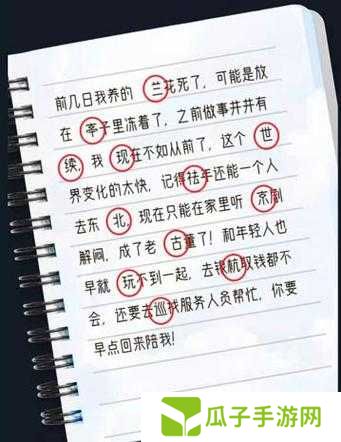 前几日我养的 兰花死了，可能是放
在 苓子里冻着了，之前做事井井有
续，我 现在不如从前了，这个 世
界变化的太快，记得祛年还能一个人
去东 北，现在只能在家里听 京剧
解闷，成了老 古董了！和年轻人也
早就 玩不到一起，去银杭取钱都不
会，还要去巡找服务人员帮忙，你要
早点回来陪我！
瓜子手游网